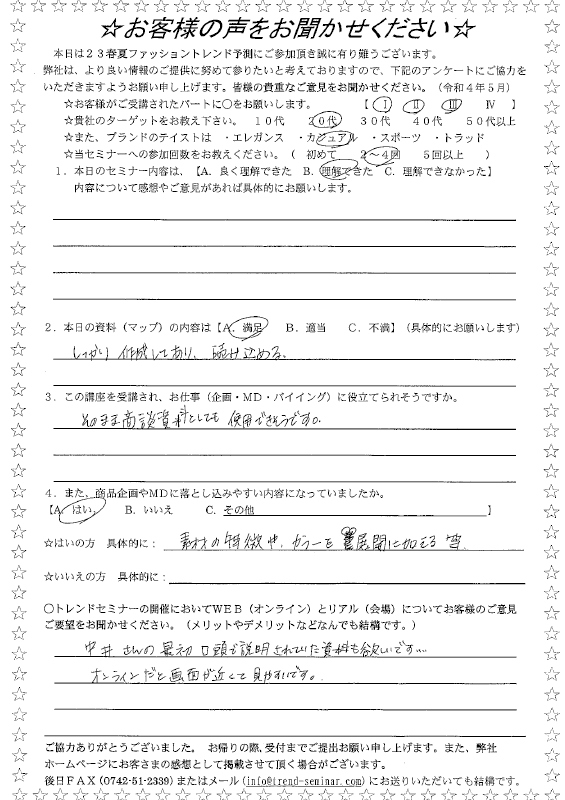 ☆お客様の声をお聞かせください☆
本日は２３春夏ファッショントレンド予測にご参加頂き誠に有り難うございます。
弊社は、より良い情報のご提供に努めて参りたいと考えておりますので、下記のアンケートにご協力を
いただきますようお願い申し上げます。皆様の貴重なご意見をお聞かせください。（令和４年５月）
☆お客様がご受講されたパートに○をお願いします。 【 Ⅰ Ⅱ Ⅲ Ⅳ 】
☆貴社のターゲットをお教え下さい。 １０代 ２０代 ３０代 ４０代 ５０代以上
☆また、ブランドのテイストは ・エレガンス ・カジュアル ・スポーツ ・トラッド
☆当セミナーへの参加回数をお教えください。（ 初めて ２～４回 ５回以上 ）
１．本日のセミナー内容は、【A．良く理解できた B．理解できた C．理解できなかった】
内容について感想やご意見があれば具体的にお願いします。
２．本日の資料（マップ）の内容は【A．満足 B．適当 C．不満】（具体的にお願いします）
しっかり作成してあり、読み込める。
３．この講座を受講され、お仕事（企画・MD・バイイング）に役立てられそうですか。
そのまま商談資料としても使用できそうです。
４．また、商品企画やMDに落とし込みやすい内容になっていましたか。
【A．はい． B．いいえ C．その他 】
☆はいの方 具体的に： 素材の特徴や、カラーを展開に加える等
☆いいえの方 具体的に：
○トレンドセミナーの開催においてWEB（オンライン）とリアル（会場）についてお客様のご意見
ご要望をお聞かせください。（メリットやデメリットなどなんでも結構です。）
中井さんの最初口頭で説明されていた資料も欲いです…
オンラインだと画面が近くて見やすいです。
ご協力ありがとうございました。 お帰りの際、受付までご提出お願い申し上げます。また、弊社
ホームページにお客さまの感想として掲載させて頂く場合がございます。
後日FAX（0742-51-2339）またはメール（info@trend-seminar.com）にお送りいただいても結構です。